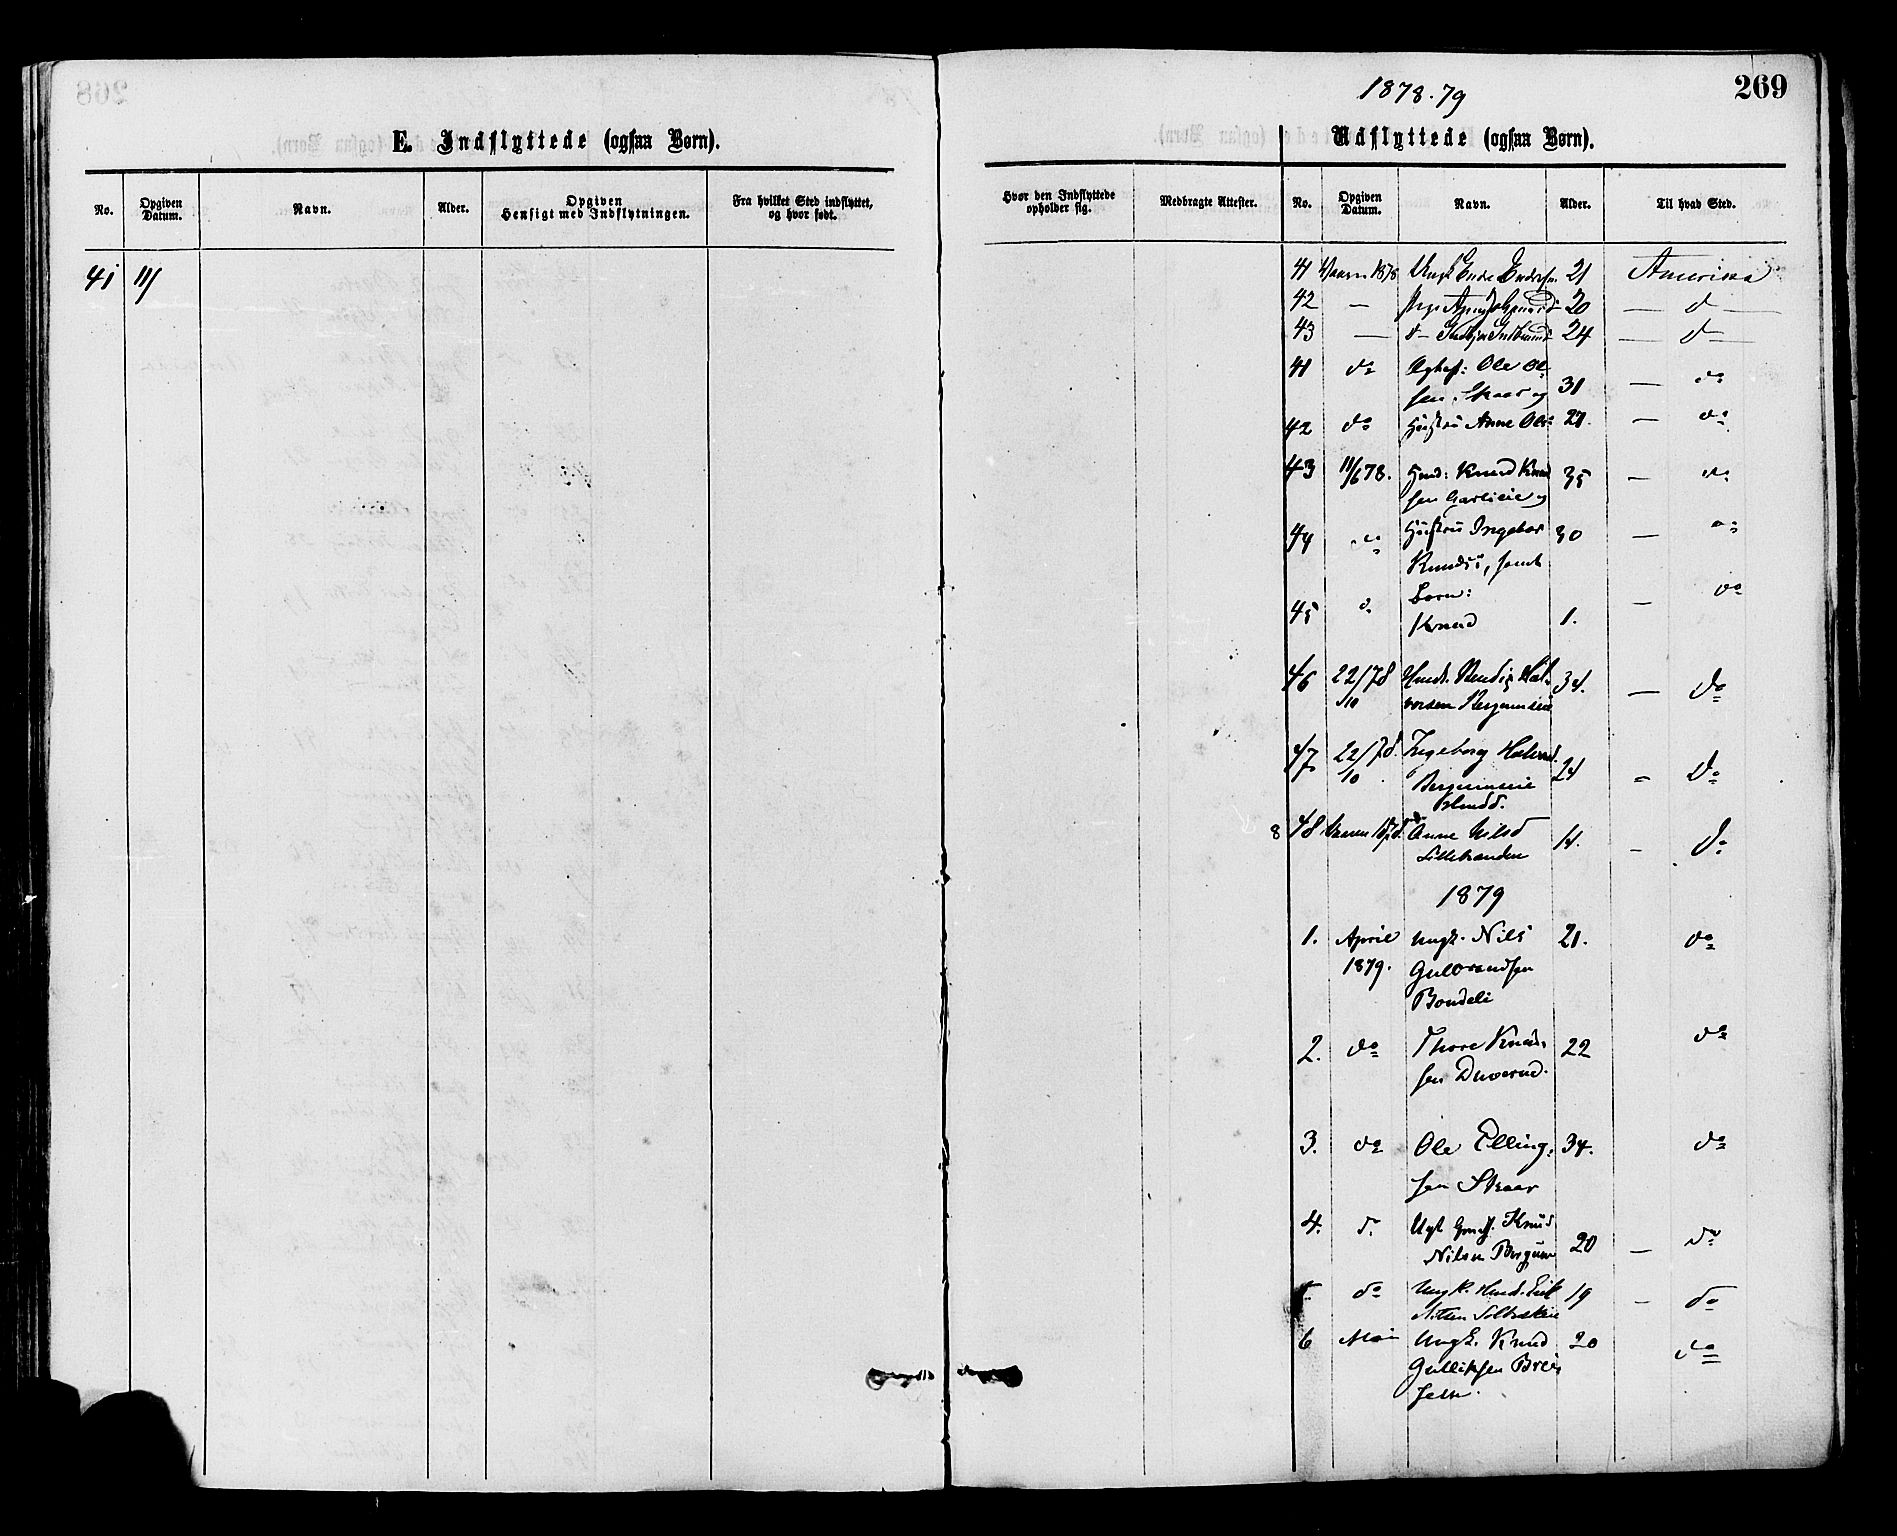 1878.79
269
E. Indflyttede (ogsaa Børn).
Udflyttede (ogsaa Børn).
No. Opgiven Datum. Navn. Alder. Opgiven Hensigt med Indflytningen. Fra hvilket Sted indflyttet, og hvor født.
Hvor den Indflyttede opholder sig. Medbragte Attester. No. Opgiven Datum. Navn. Alder. Til hvad Sted.
41 11/
41 Vaaren 1878 Ungk 21 Amerika
42 — 20 — d —
43 — 24 — d —
41 do Ole Ol-
sen Skaar og 31 — do
42 do Hustru Anne Ols: 27. — do
43 11/6 78. Husm: Knud Knud
sen Garlieie og 35 — do
44 do Hustru Ingebor 30 — do
Knudsd, samt
45 d. Børn: — do
Knud 1.
46 22/10 78 Hal-
vorsen Bergumseie 34. — do
47 22/10 78. Ingeborg Halvord.
Bergumseie 24 — Do
8 48 Vaaren 1878. Anne Nilsd
Lillebranden 14. — Do
1879
1. April Ungk. Nils 21. do
1879. Gulbrandsen
Bondeli
2. do Thore Knud- 22 do
sen
3. do Ole Elling- 34. do
sen Skaar
4. d. Knud
Nilsen Bergum 20 — do
do Ungk. 19 — do
Nilsen
6 Mai Ungk. Knud 20 do
Gulliksen